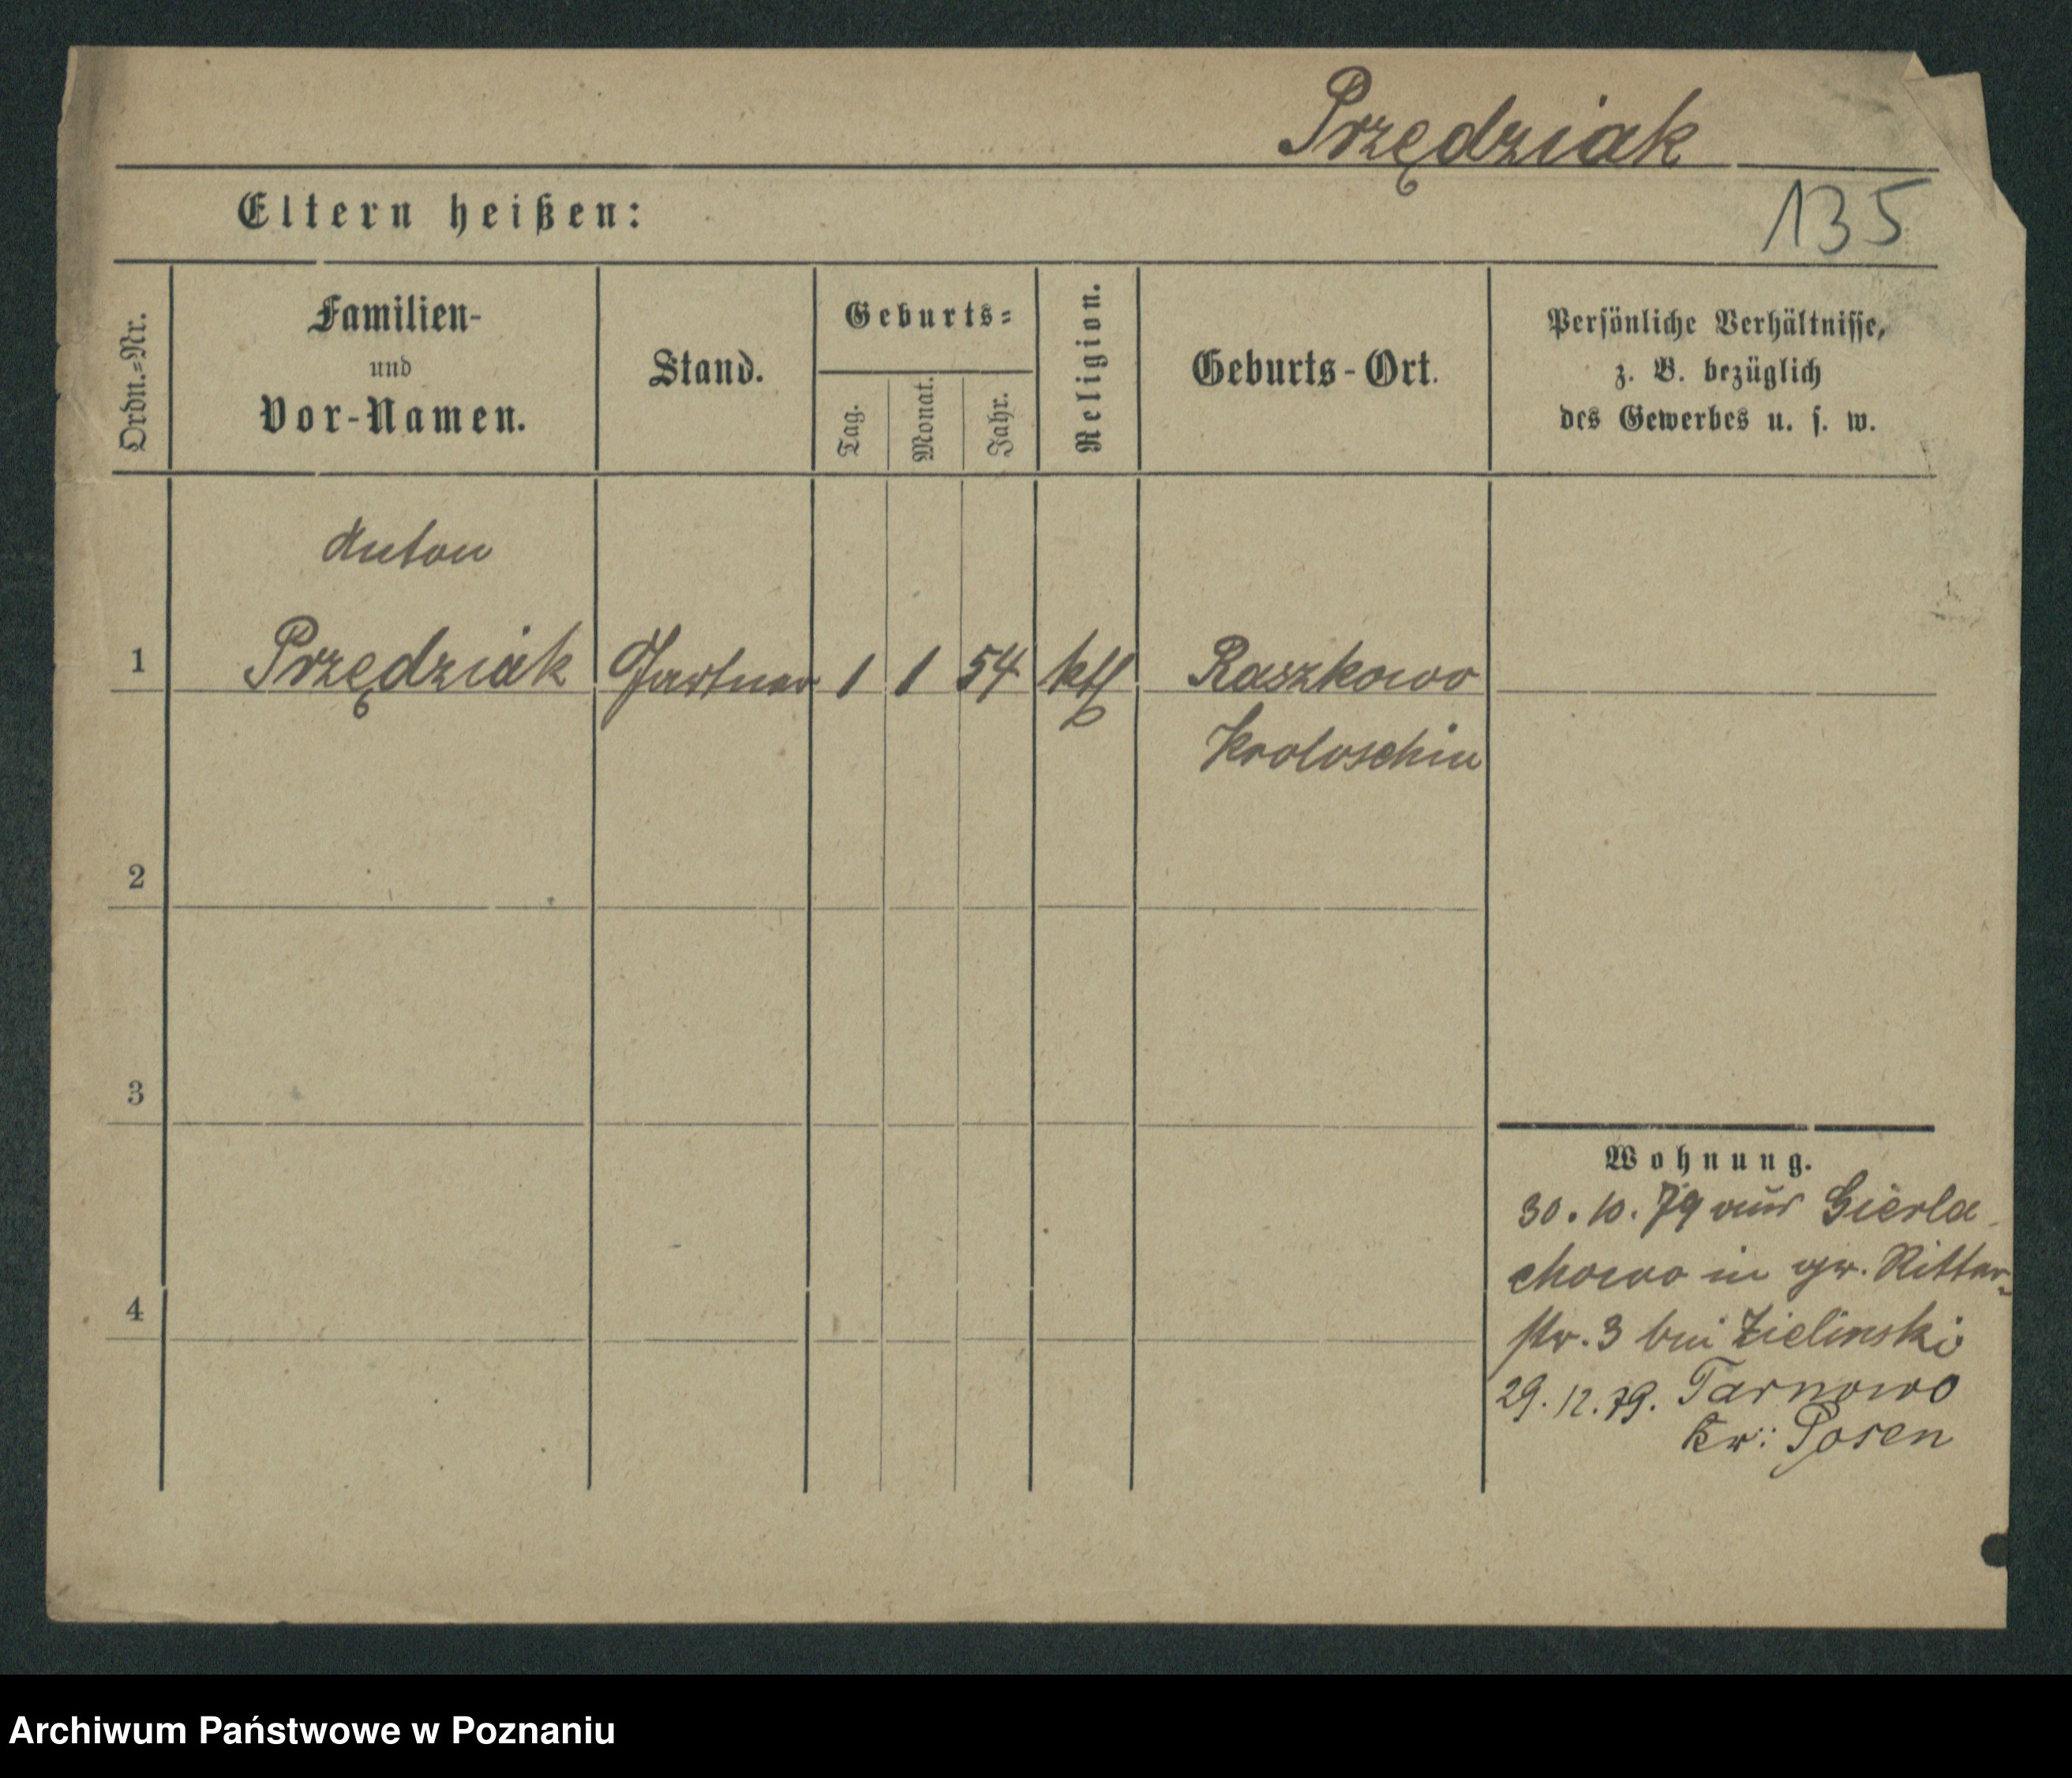 Przędziak
Eltern heißen:
135
Ordn.=Nr.
Familien-
und
Vor-Namen.
Stand.
Geburts=
Tag.
Monat.
Jahr.
Religion.
Geburts-Ort.
Persönliche Verhältnisse,
z. B. bezüglich
des Gewerbes u. s. w.
Anton
1 Przędziak Gärtner 1 1 54 kth Raszkowo
Krotoschin
2
3
4
Wohnung.
30. 10. 79 aus Gierla
chowo in gr. Ritter-
str. 3 bei Zielinski
29. 12. 79. Tarnowo
Kr: Posen
Archiwum Państwowe w Poznaniu